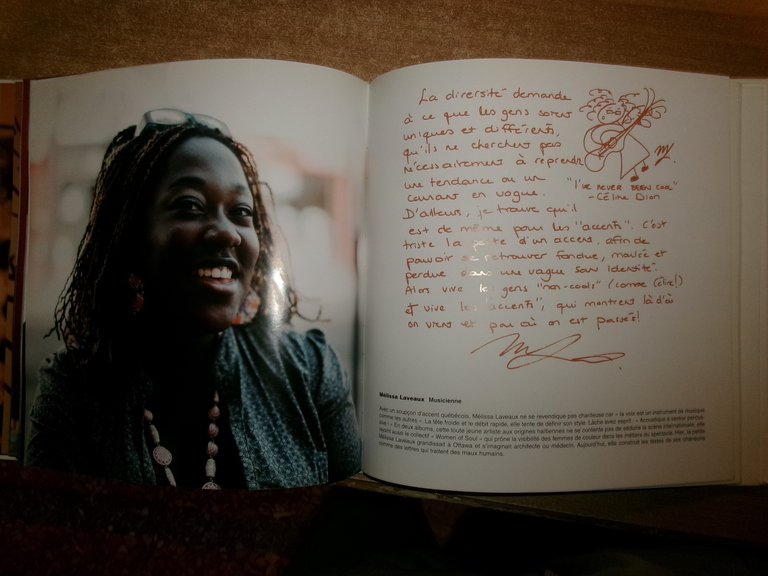 La diversité demande
à ce que les gens soient
uniques et différents,
qu'ils ne cherchent pas
nécessairement à reprendre
une tendance ou un
courant en vogue.
"I've never been cool"
- Céline Dion
D'ailleurs, je trouve qu'il
est de même pour les "accents". C'est
triste la perte d'un accent, afin de
pouvoir se retrouver fondue, mariée et
perdue dans une vague sans identité.
Alors vive les gens "non-cools" (comme Céline!)
et vive les "accents", qui montrent là d'où
on vient et par où on est passés!
Mélissa Laveaux Musicienne
Avec un soupçon d'accent québécois, Mélissa Laveaux ne se revendique pas chanteuse car « la voix est un instrument de musique
comme les autres ». La tête froide et le débit rapide, elle tente de définir son style. Lâche avec esprit : « Acoustique à senior percus-
sive ! » En deux albums, cette toute jeune artiste aux origines haïtiennes ne se contente pas de séduire la scène internationale, elle
rejoint aussi le collectif « Women of Soul » qui prône la visibilité des femmes de couleur dans les métiers du spectacle. Hier, la petite
Mélissa Laveaux grandissait à Ottawa et s'imaginait architecte ou médecin. Aujourd'hui, elle construit les textes de ses chansons
comme des lettres qui traitent des maux humains.